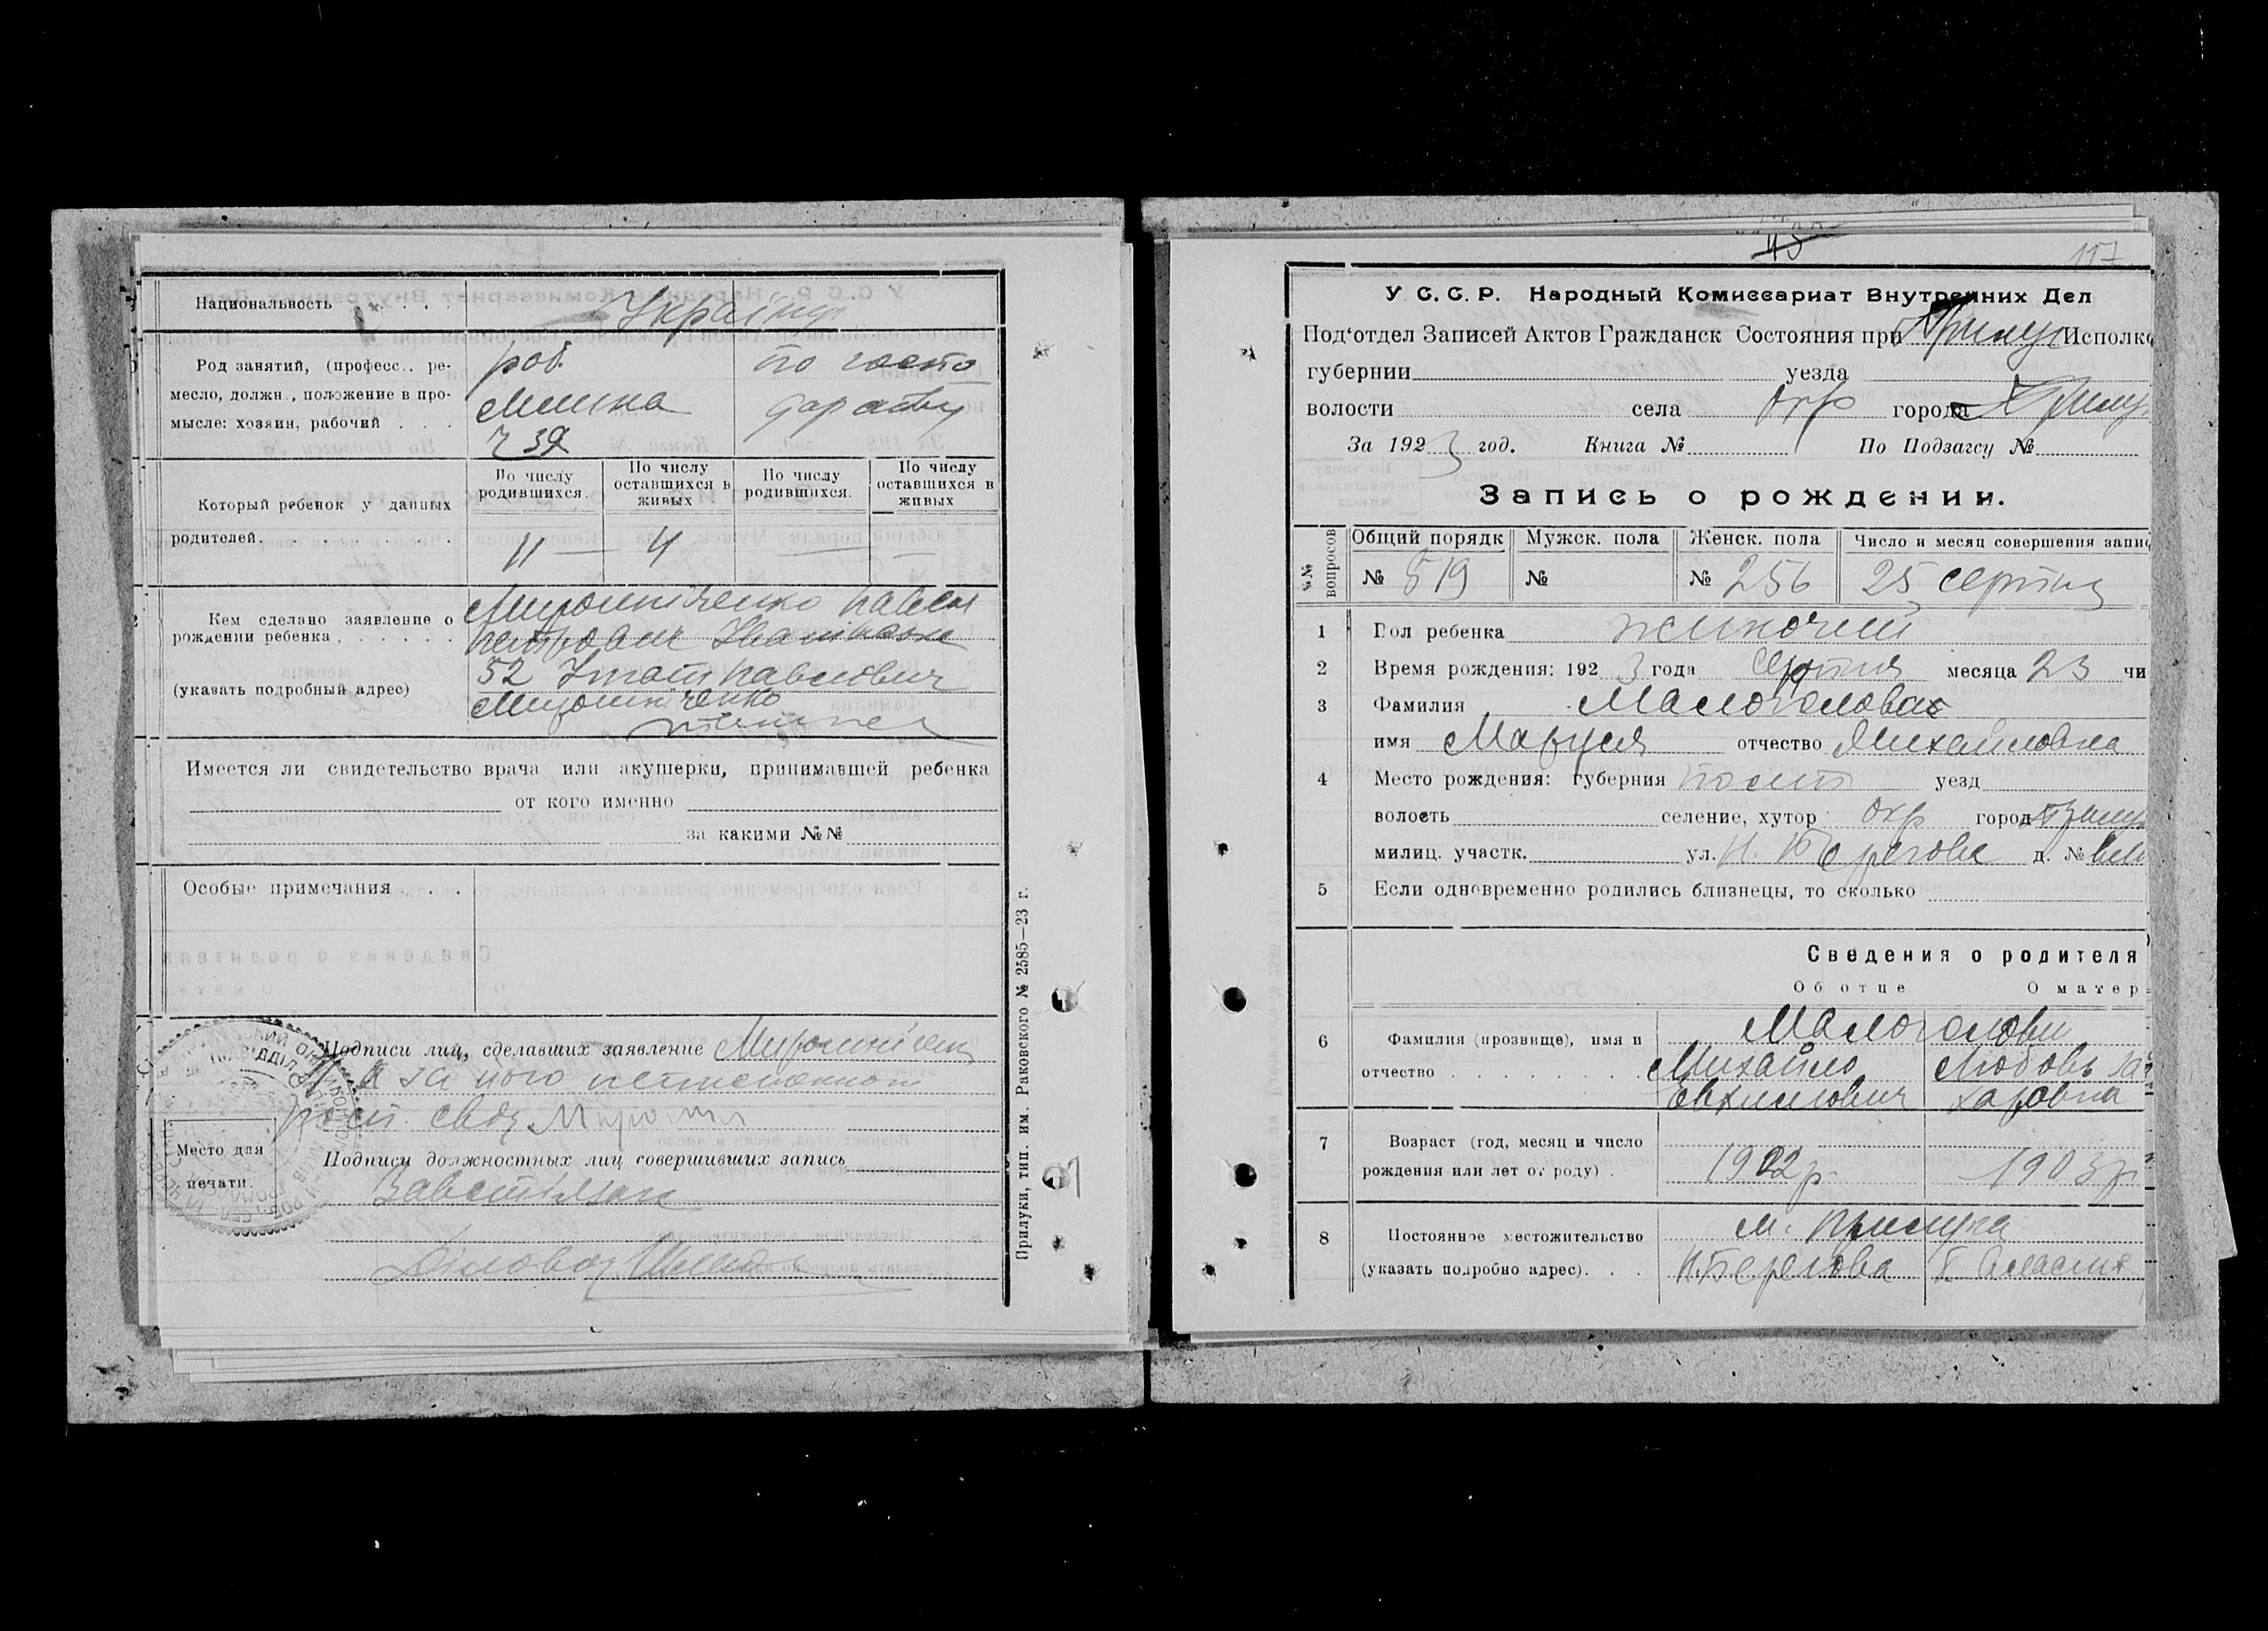 Национальность . . . . Україн
Род занятий, (професс., ре-
месло, должн., положение в про-
мысле: хозяин, рабочий . . .
роб.
Млина
ч 39
по госпо
дарству
Который ребенок у данных
родителей. . . . . . . .
По числу родившихся.
По числу оставшихся в живых
По числу родившихся.
По числу оставшихся в живых
11 — 4 — —
Кем сделано заявление о
рождении ребенка . . . . . .
(указать подробный адрес)
Мирошніченко Павел
52 Павлович
Мирошніченко
Имеется ли свидетельство врача или акушерки, принимавшей ребенка
от кого именно
за какими №№
Особые примечания . . .
Подписи лиц, сделавших заявление Мирошніченко
А за него неписьменного
Место для
печати.
Подписи должностных лиц совершивших запись
Діловод
Прилуки, тип. им. Раковского № 2585—23 г.
43
117
У С. С. Р. Народный Комиссариат Внутренних Дел
Под'отдел Записей Актов Гражданск Состояния при Прилуц Исполко
губернии уезда
волости села Окр города Прилу
За 1923 год. Книга № По Подзагсу №
Запись о рождении.
№№ вопросов
Общий порядк Мужск. пола Женск. пола Число и месяц совершения запис
№ 519 № № 256 25 серпня
1 Пол ребенка жиночий
2 Время рождения: 1923 года Серпня месяца 23 чи
3 Фамилия Малоголова
имя Маруся отчество Михайловна
4 Место рождения: губерния Полт уезд
волость селение, хутор Окр город Прилу
милиц. участк. ул. Н. Берегова д. №
5 Если одновременно родились близнецы, то сколько
Сведения о родителя
Об отце О матер
6 Фамилия (прозвище), имя и
отчество . . . . . . . .
Малоголови
Михайло
Евхимович
Любовь За
харовна
7 Возраст (год, месяц и число
рождения или лет от роду) .
1902р. 1903р
8 Постоянное местожительство
(указать подробно адрес). . .
м. Прилука
Н.Берегова